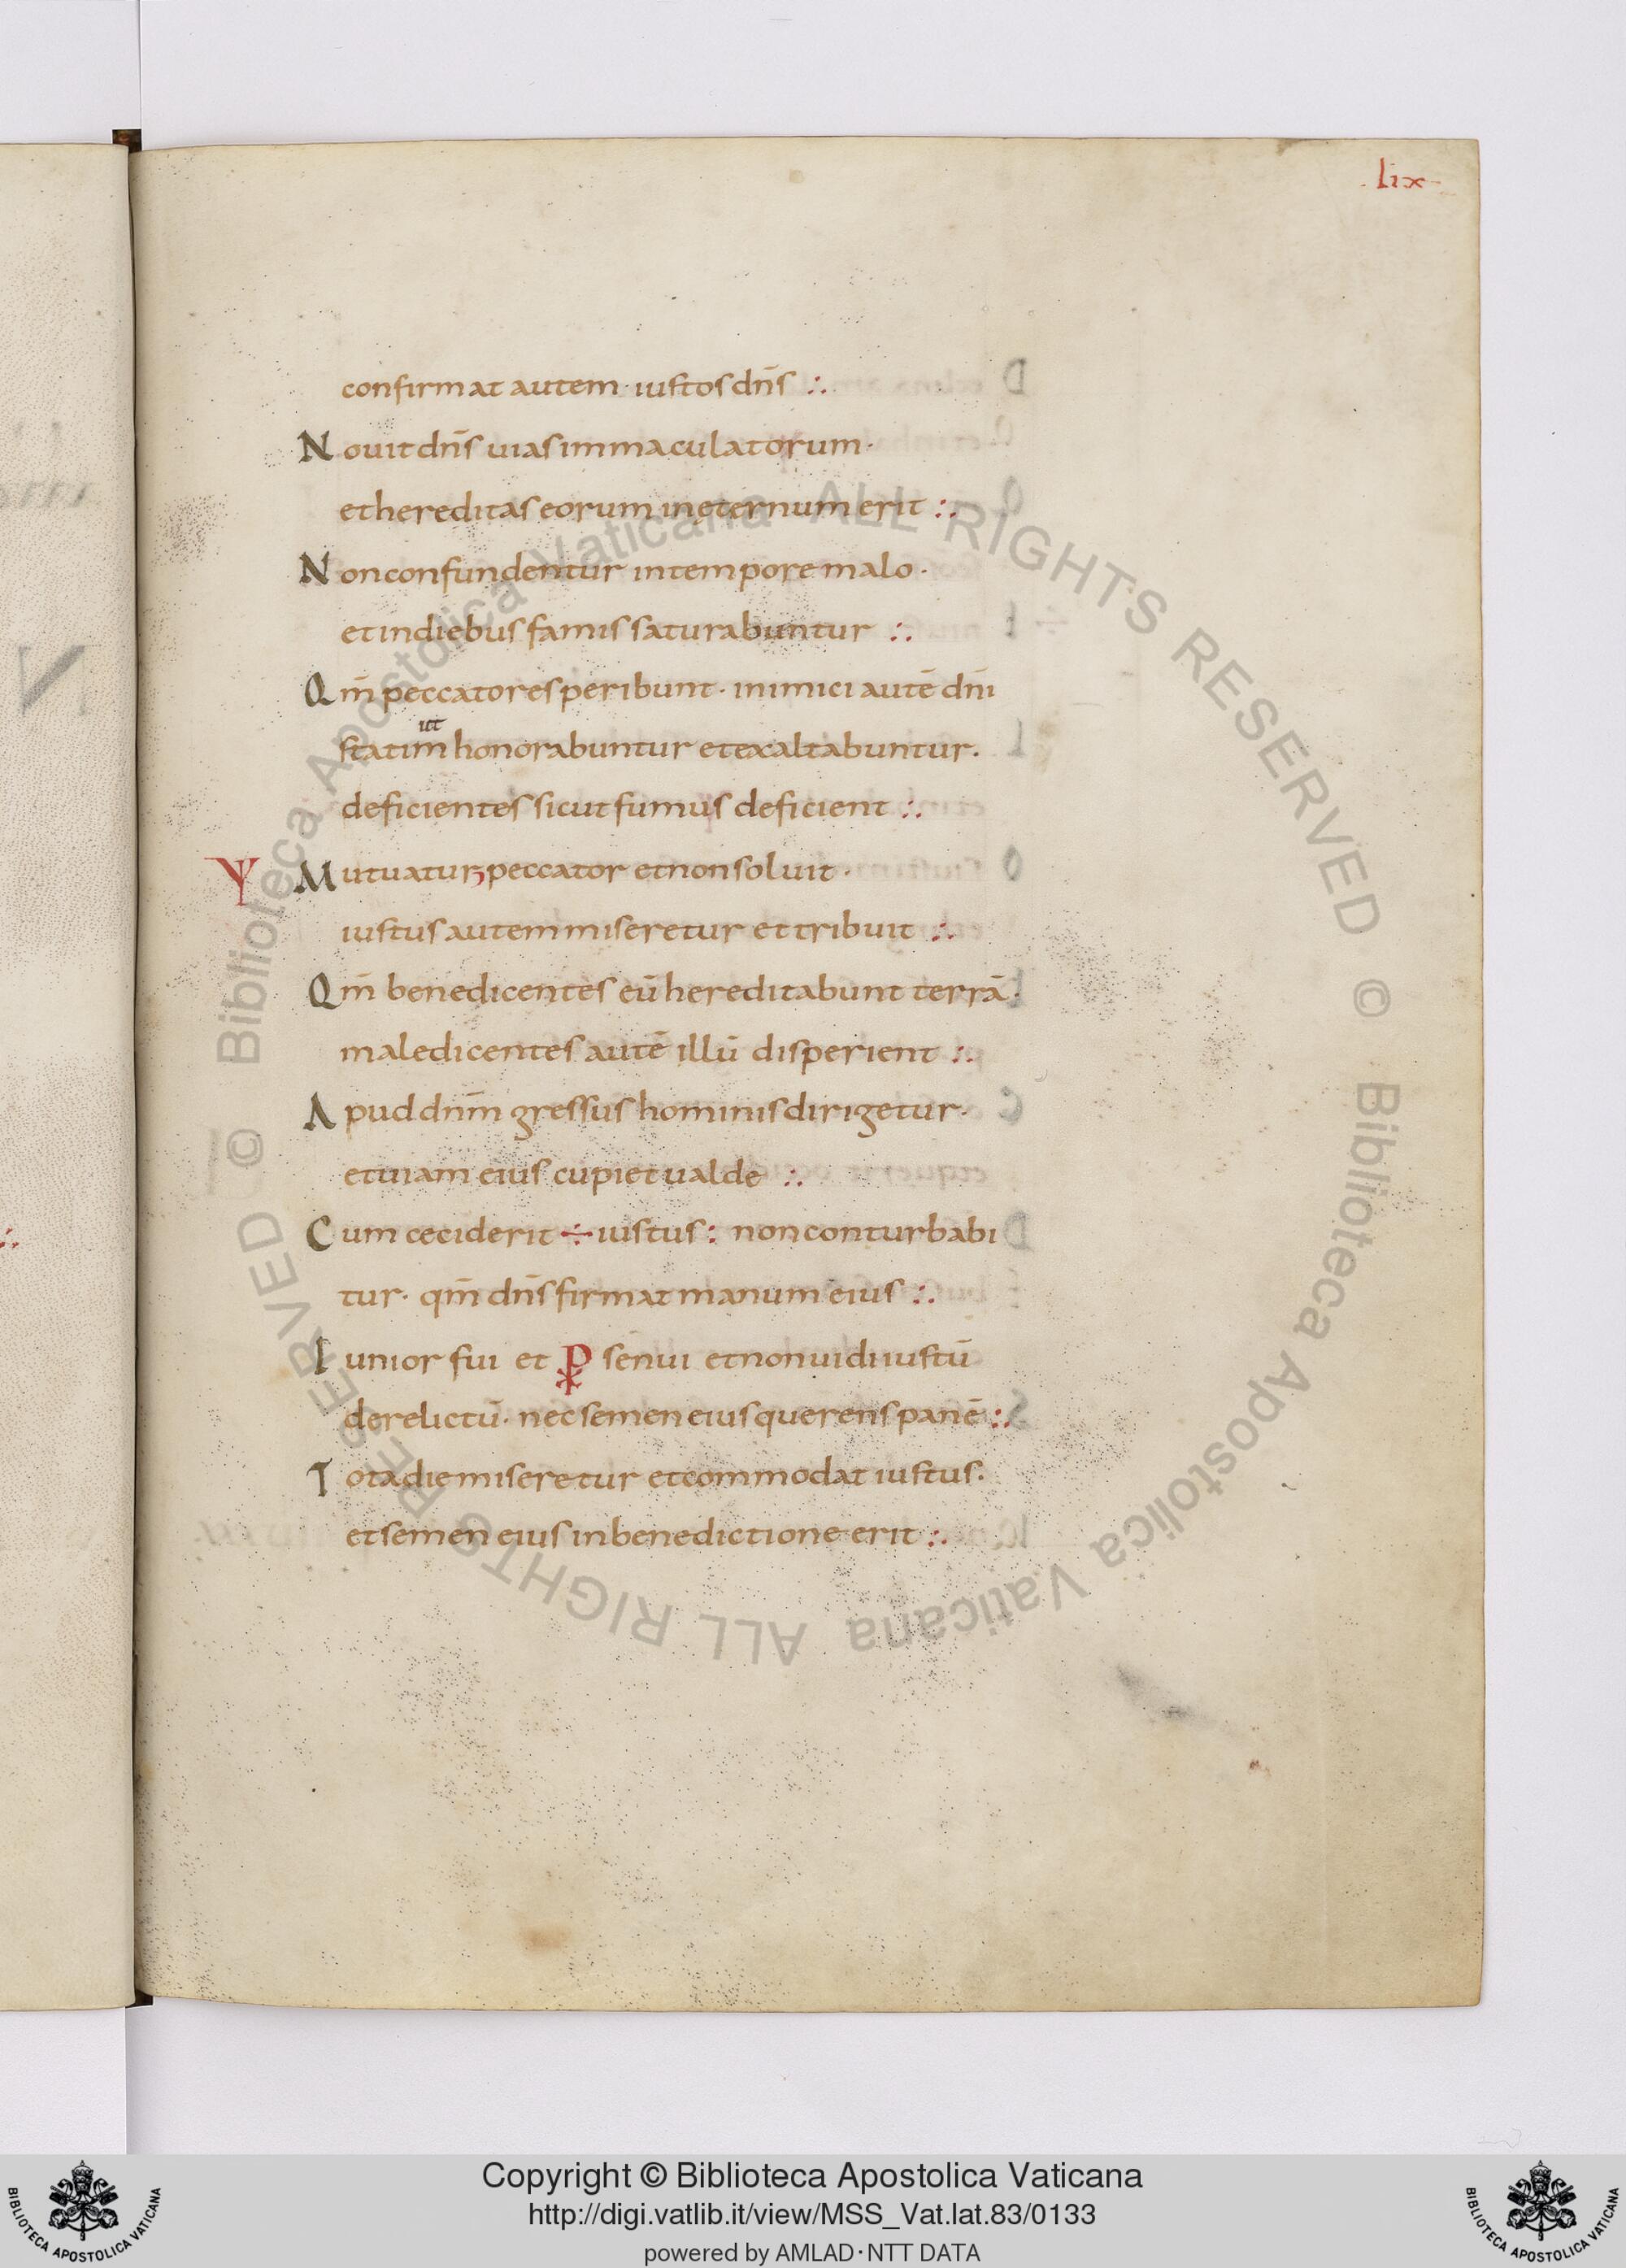 lix
confirmat autem · iustos dn̄s ∴
Nouit dn̄s uias immaculatorum ·
et hereditas eorum in ęternum erit ∴
Non confundentur in tempore malo ·
et in diebus famis saturabuntur ∴
Qm̄ peccatores peribunt · inimici autē dn̄i
ut
statim honorabuntur et exaltabuntur ·
deficientes sicut fumus deficient ∴
Ψ Mutuatur peccator et non soluit ·
iustus autem miseretur et tribuit ∴
Qm̄ benedicentes eū hereditabunt terrā ·
maledicentes autē illū disperient ∴
Apud dnm̄ gressus hominis dirigetur ·
et uiam eius cupiet ualde ∴
Cum ceciderit ÷ iustus : non conturbabi
tur · qm̄ dn̄s firmat manum eius ∴
Iunior fui et ⳩ senui et non uidi iustū
derelictū · nec semen eius querens panē ∴
Tota die miseretur et commodat iustus ·
et semen eius in benedictione erit ∴
© Biblioteca Apostolica Vaticana ALL RIGHTS RESERVED © Biblioteca Apostolica Vaticana ALL RIGHTS RESERVED
Copyright © Biblioteca Apostolica Vaticana
http://digi.vatlib.it/view/MSS_Vat.lat.83/0133
powered by AMLAD·NTT DATA
BIBLIOTECA APOSTOLICA VATICANA
BIBLIOTECA APOSTOLICA VATICANA